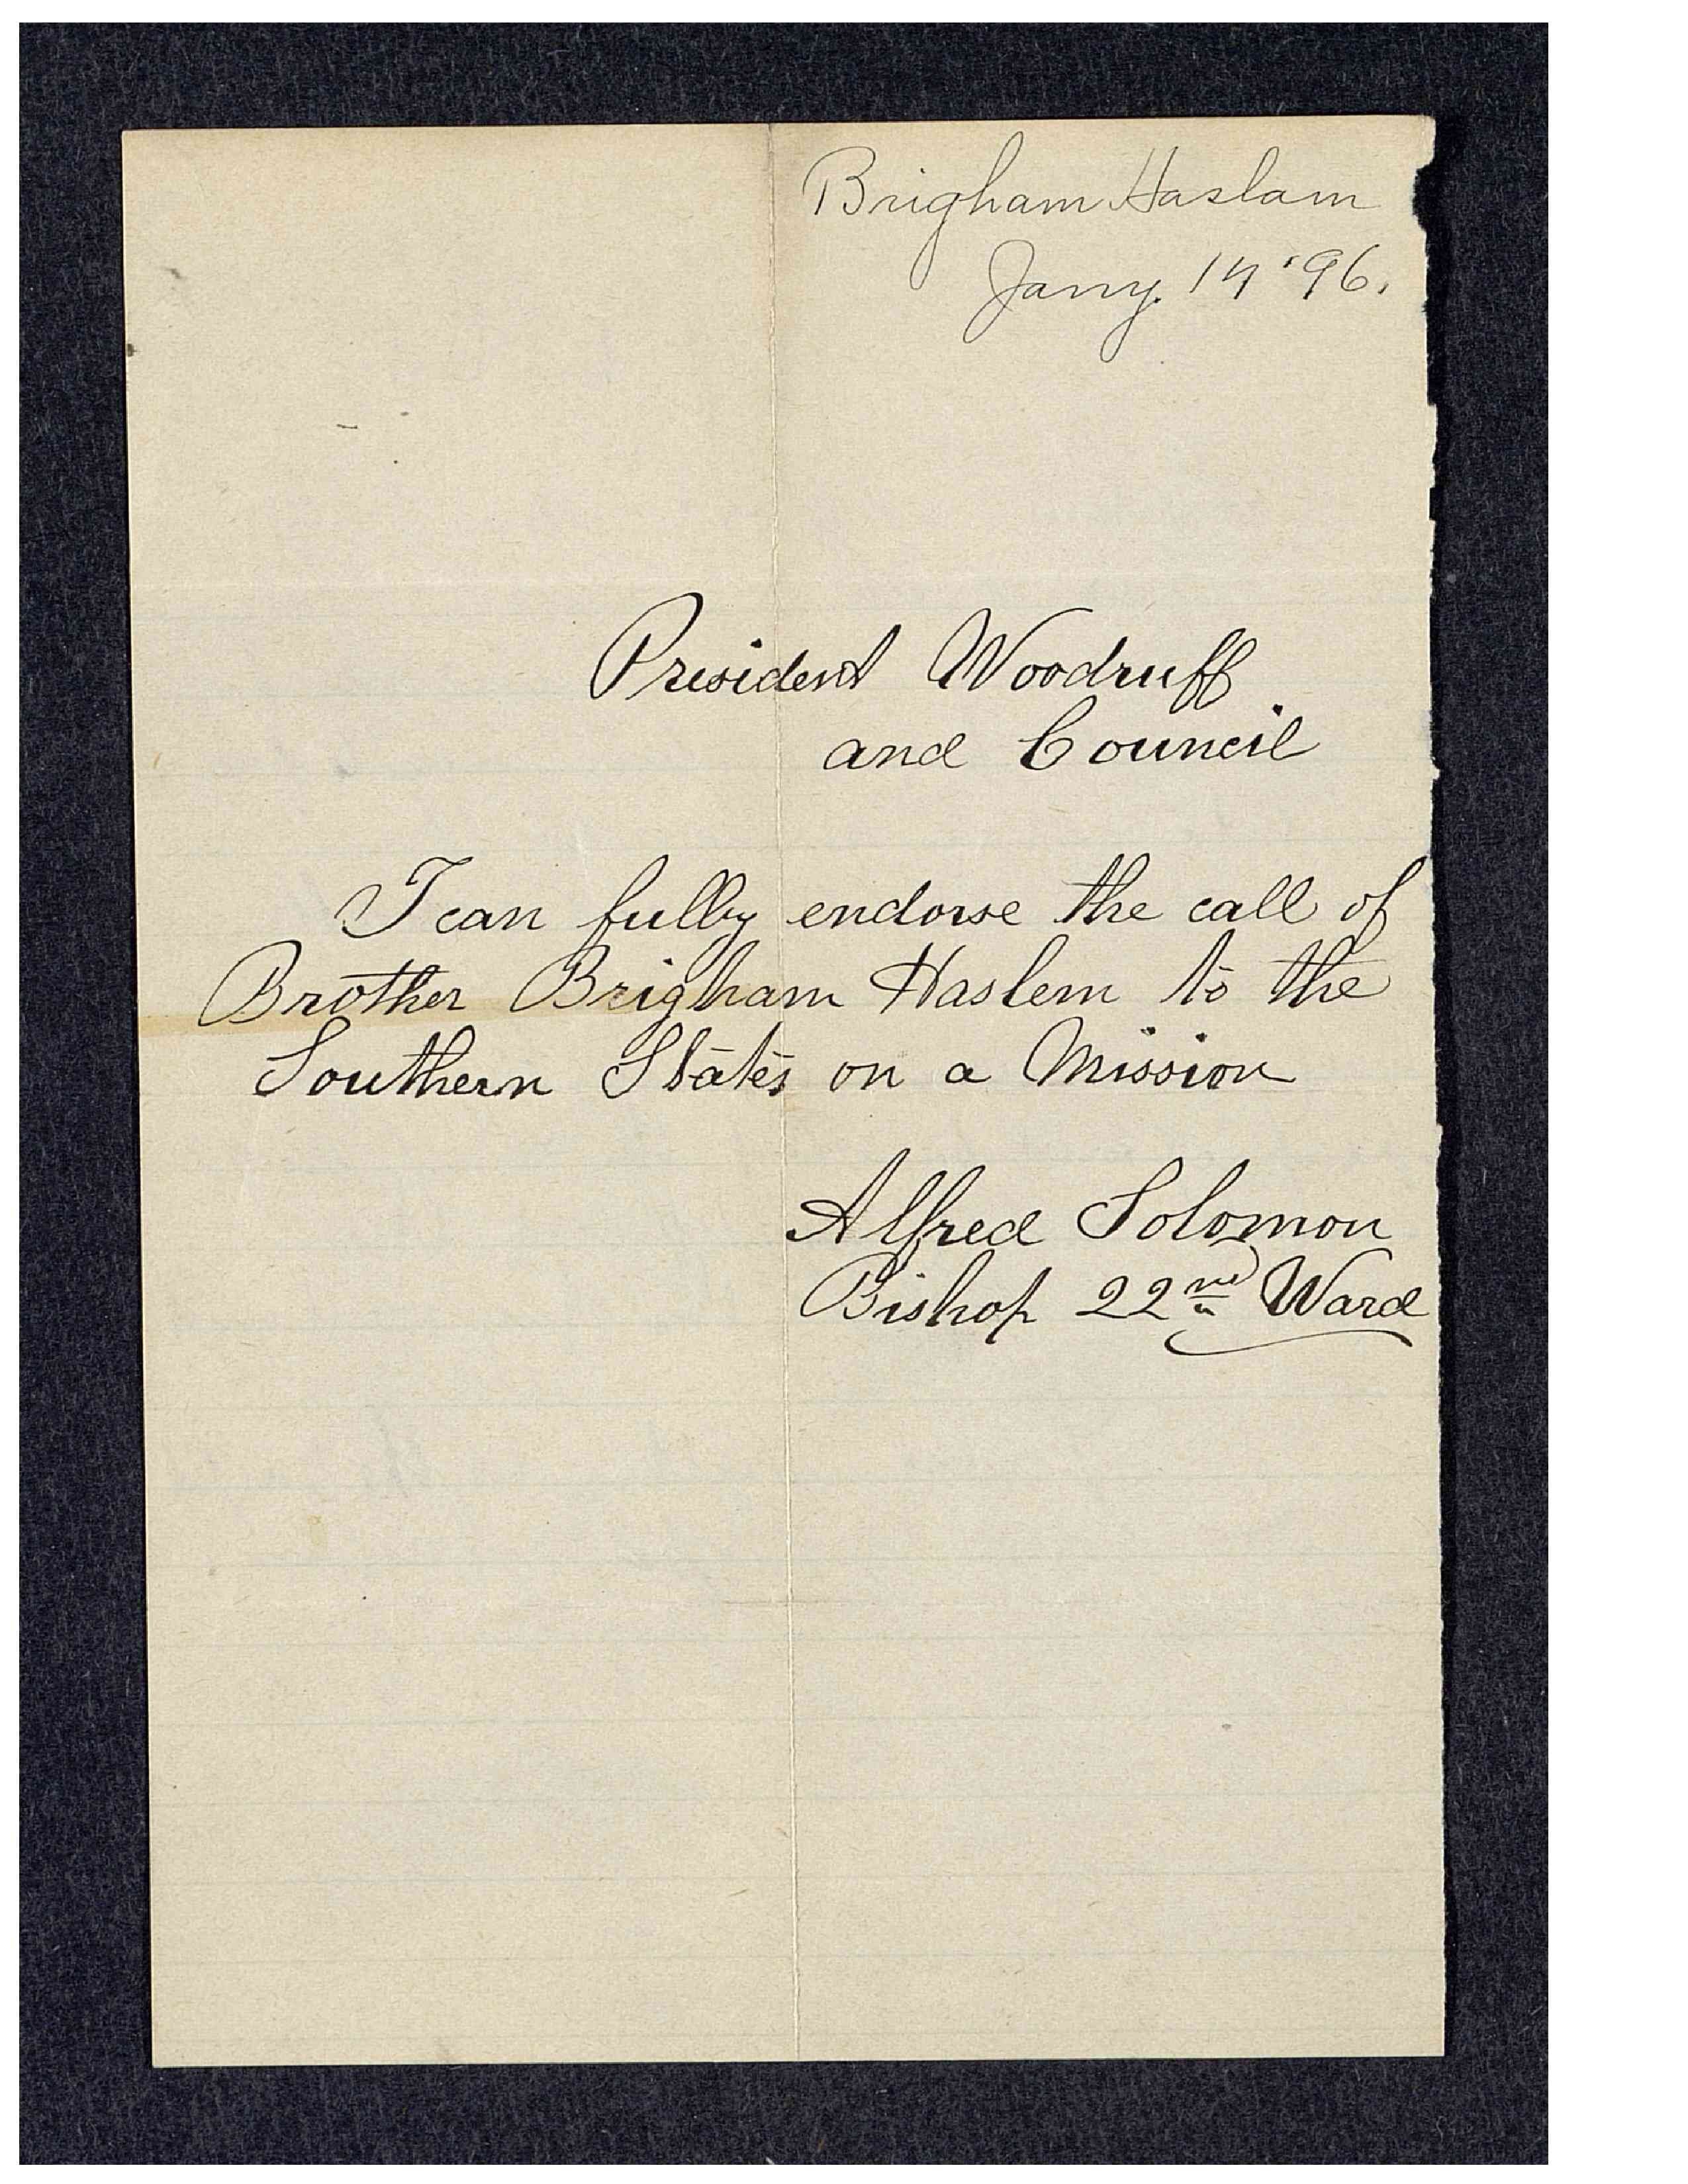 Brigham Haslam
Jany. 14 '96.
President Woodruff
and Council
I can fully endorse the call of
Brother Brigham Haslem to the
Southern States on a Mission
Alfred Solomon
Bishop 22nd Ward